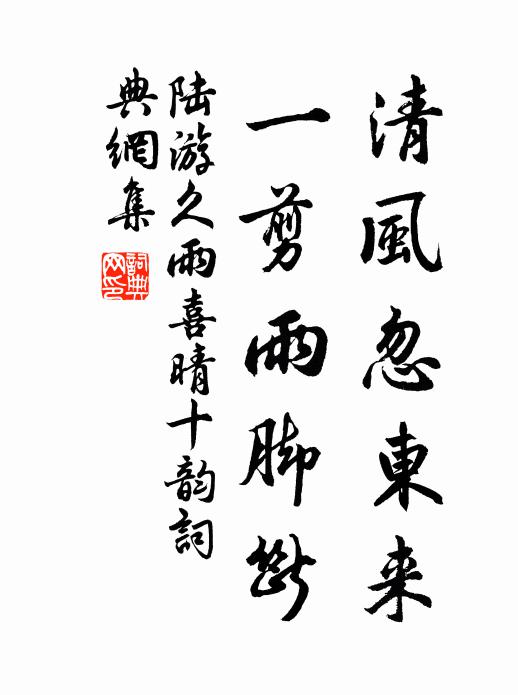 清風忽東来
一剪雨脚斷
陆游久雨喜晴十韵詞
典網集
詞典
网印